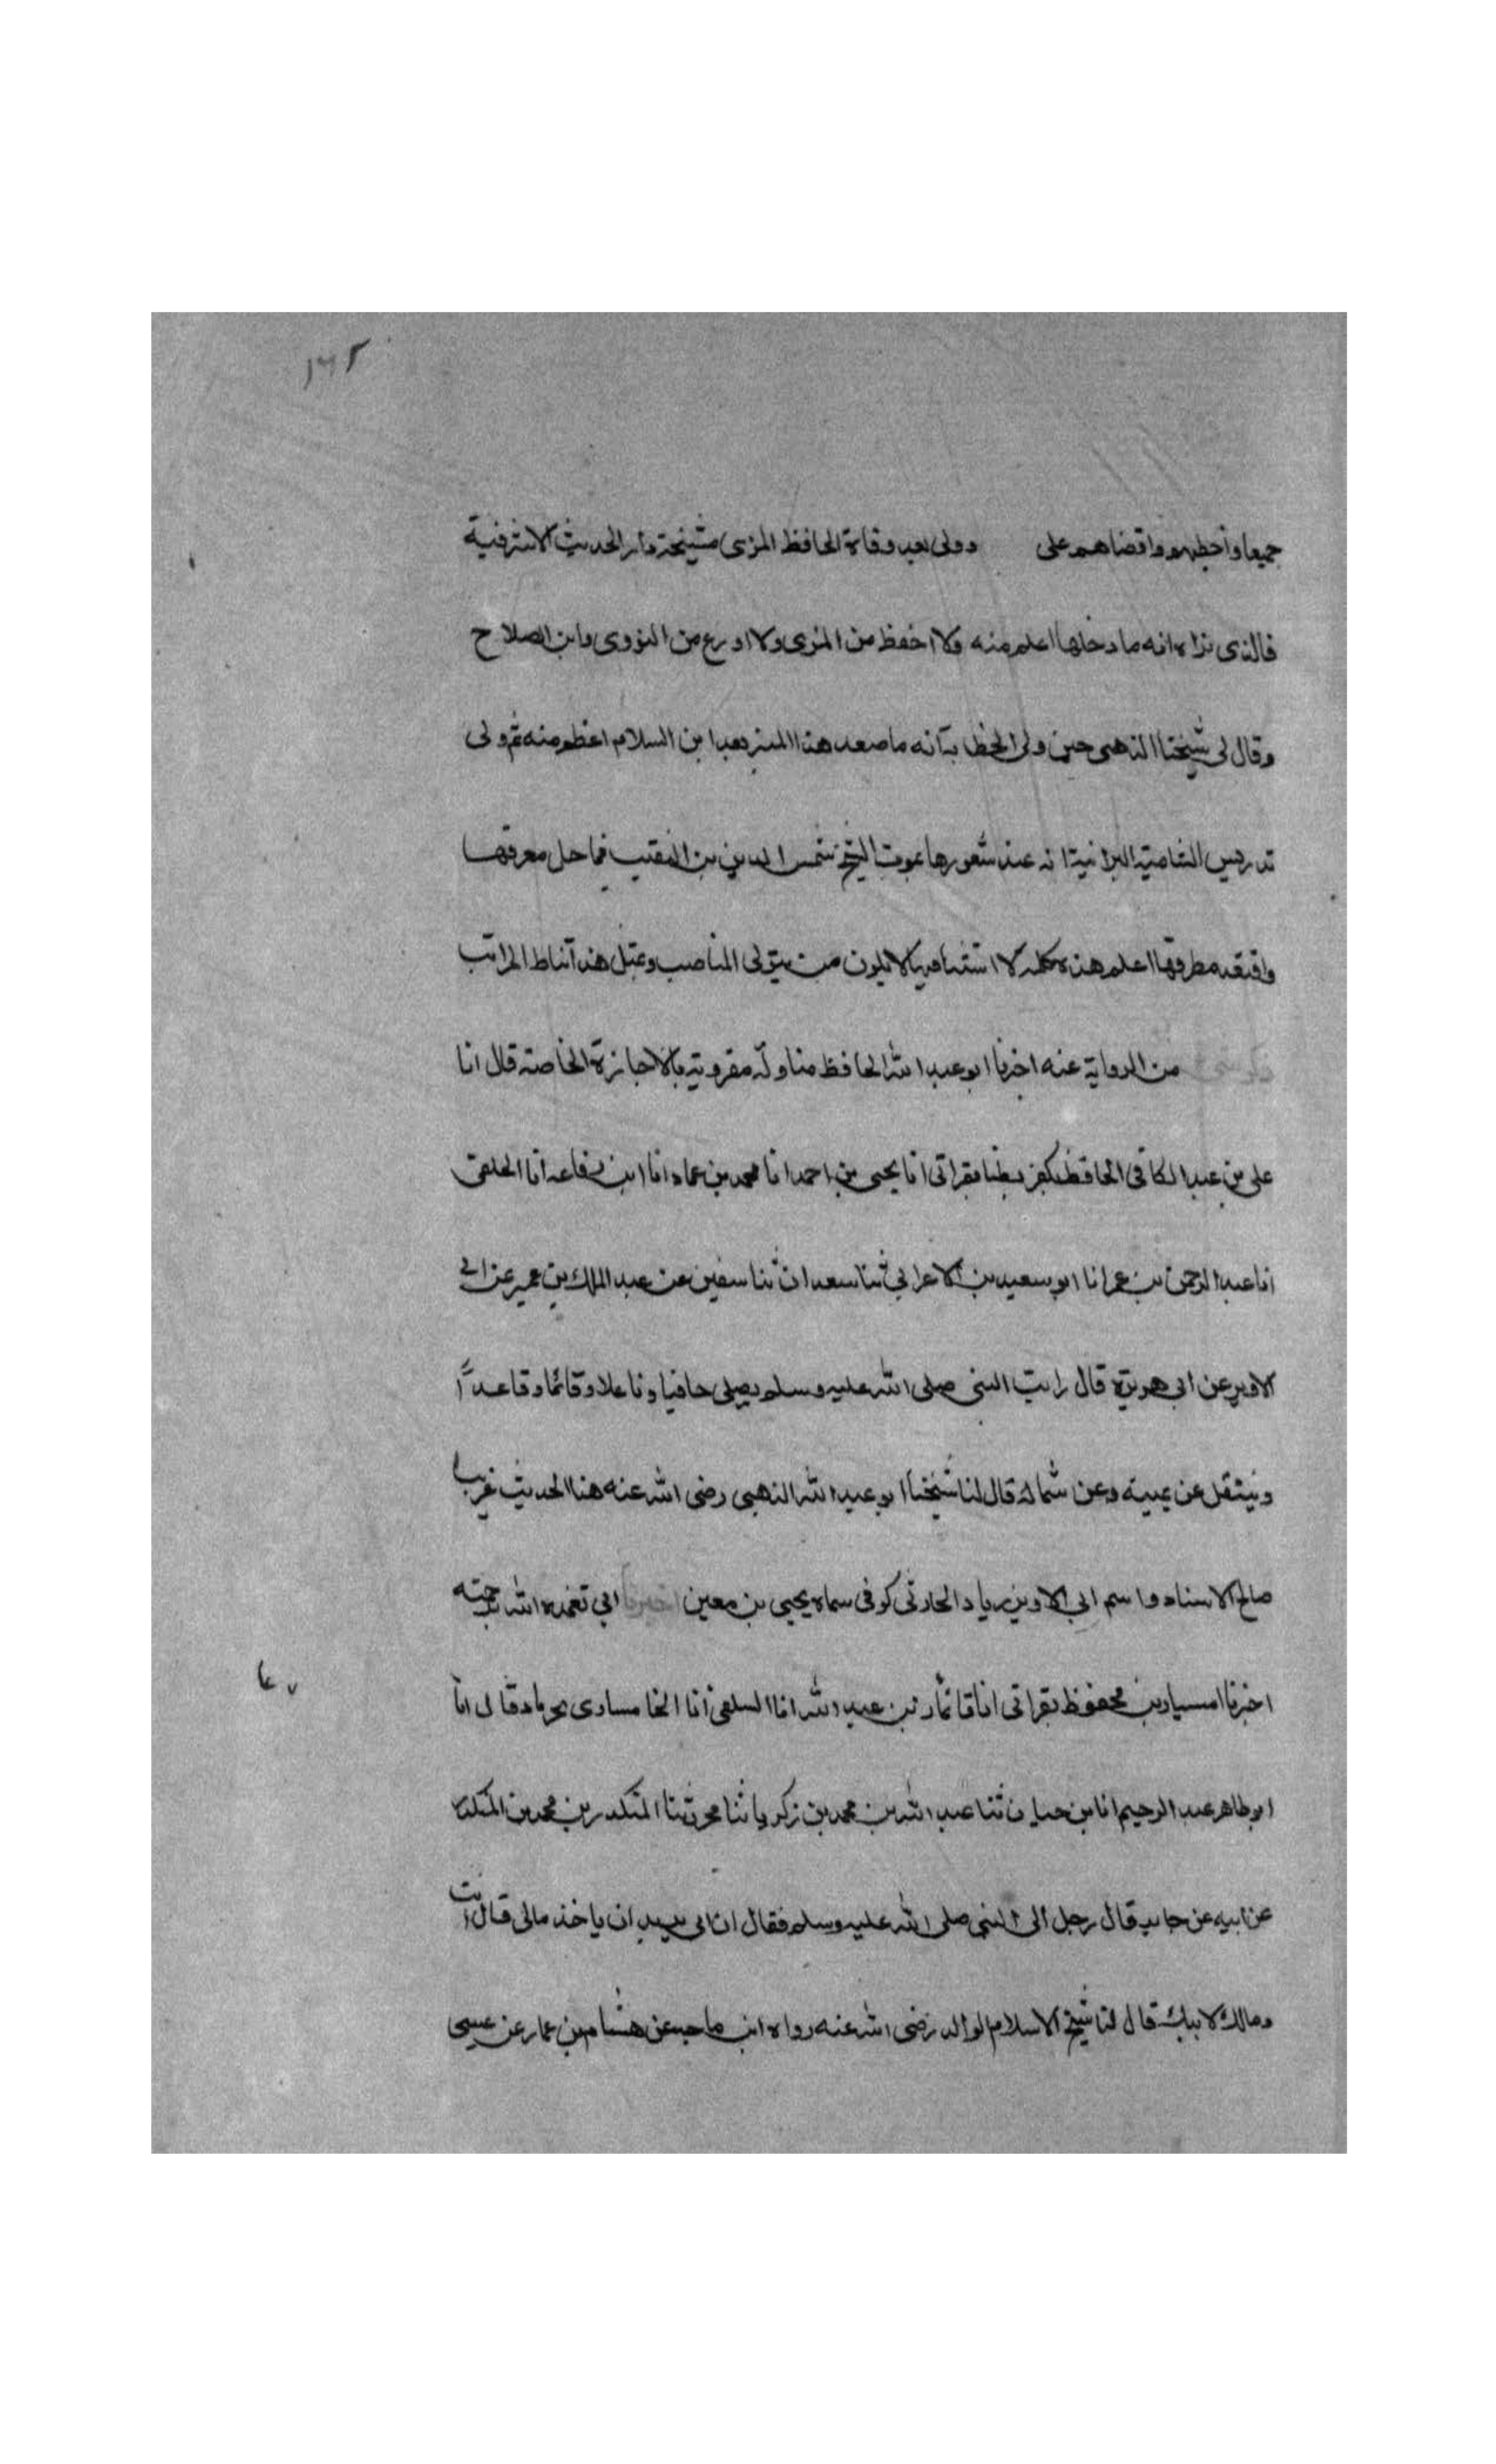 ١٦٢
جميعا وأخطبهم واقضاهم على وولى بعد وفاة الحافظ المزى مشيخة دار الحديث الاشرفية
فالذى نراه انه ما دخلها اعلم منه ولا احفظ من المزى ولا اورع من النووى وابن الصلاح
وقال لى شيخنا الذهبى حين ولى الخطابة انه ما صعد هذا المنبر بعد ابن السلام اعظم منه ثم ولى
تدريس الشامية البرانية عند شعورها بموت الشيخ شمس الدين بن النقيب فما حل معرقها
واقتعد مطرقها اعلم هذه كلمة لا استثنا فيها لا يكون ممن يتولى المناصب وعتبل هذا تناط المراتب
من الرواية عنه اخبرنا ابو عبد الله الحافظ مناولة مقرونة بالاجازة الخاصة قال انا
على بن عبد الكافى الحافظ بقراتى انا يحيى بن احمد انا محمد بن عماد انا ابن رفاعه انا الخلعى
انا عبد الرحمن بن عمر انا ابو سعيد بن الاعرابي ثنا سعدان ثنا سفين عن عبد الملك بن عمير عن ابى
الاوبر عن ابى هريرة قال رايت النبى صلى الله عليه وسلم يصلى حافيا وناعلا وقائما وقاعدًا
وينتقل عن يمينه وعن شماله قال لنا شيخنا ابو عبد الله الذهبى رضى الله عنه هذا الحديث غريب
صالح الاسناد واسم ابى الاوبر زياد الحارثى كوفى سماه يحيى بن معين اخبرنا ابى تغمده الله برحمته
اخبرنا بن محفوظ بقراتى انا بن عبد الله انا السلفى انا قال انا
ابو طاهر عبد الرحيم انا بن حيان ثنا عبد الله بن محمد بن زكريا ثنا محرز ثنا المنكدر بن محمد بن المنكدر
عن ابيه عن جابر قال رجل الى النبى صلى الله عليه وسلم فقال ان ابى يريد ان ياخذ مالى قال انت
ومالك لابيك قال لنا شيخ الاسلام الوالد رضى الله عنه رواه ابن ماجه عن هشام بن عمار عن عيسى